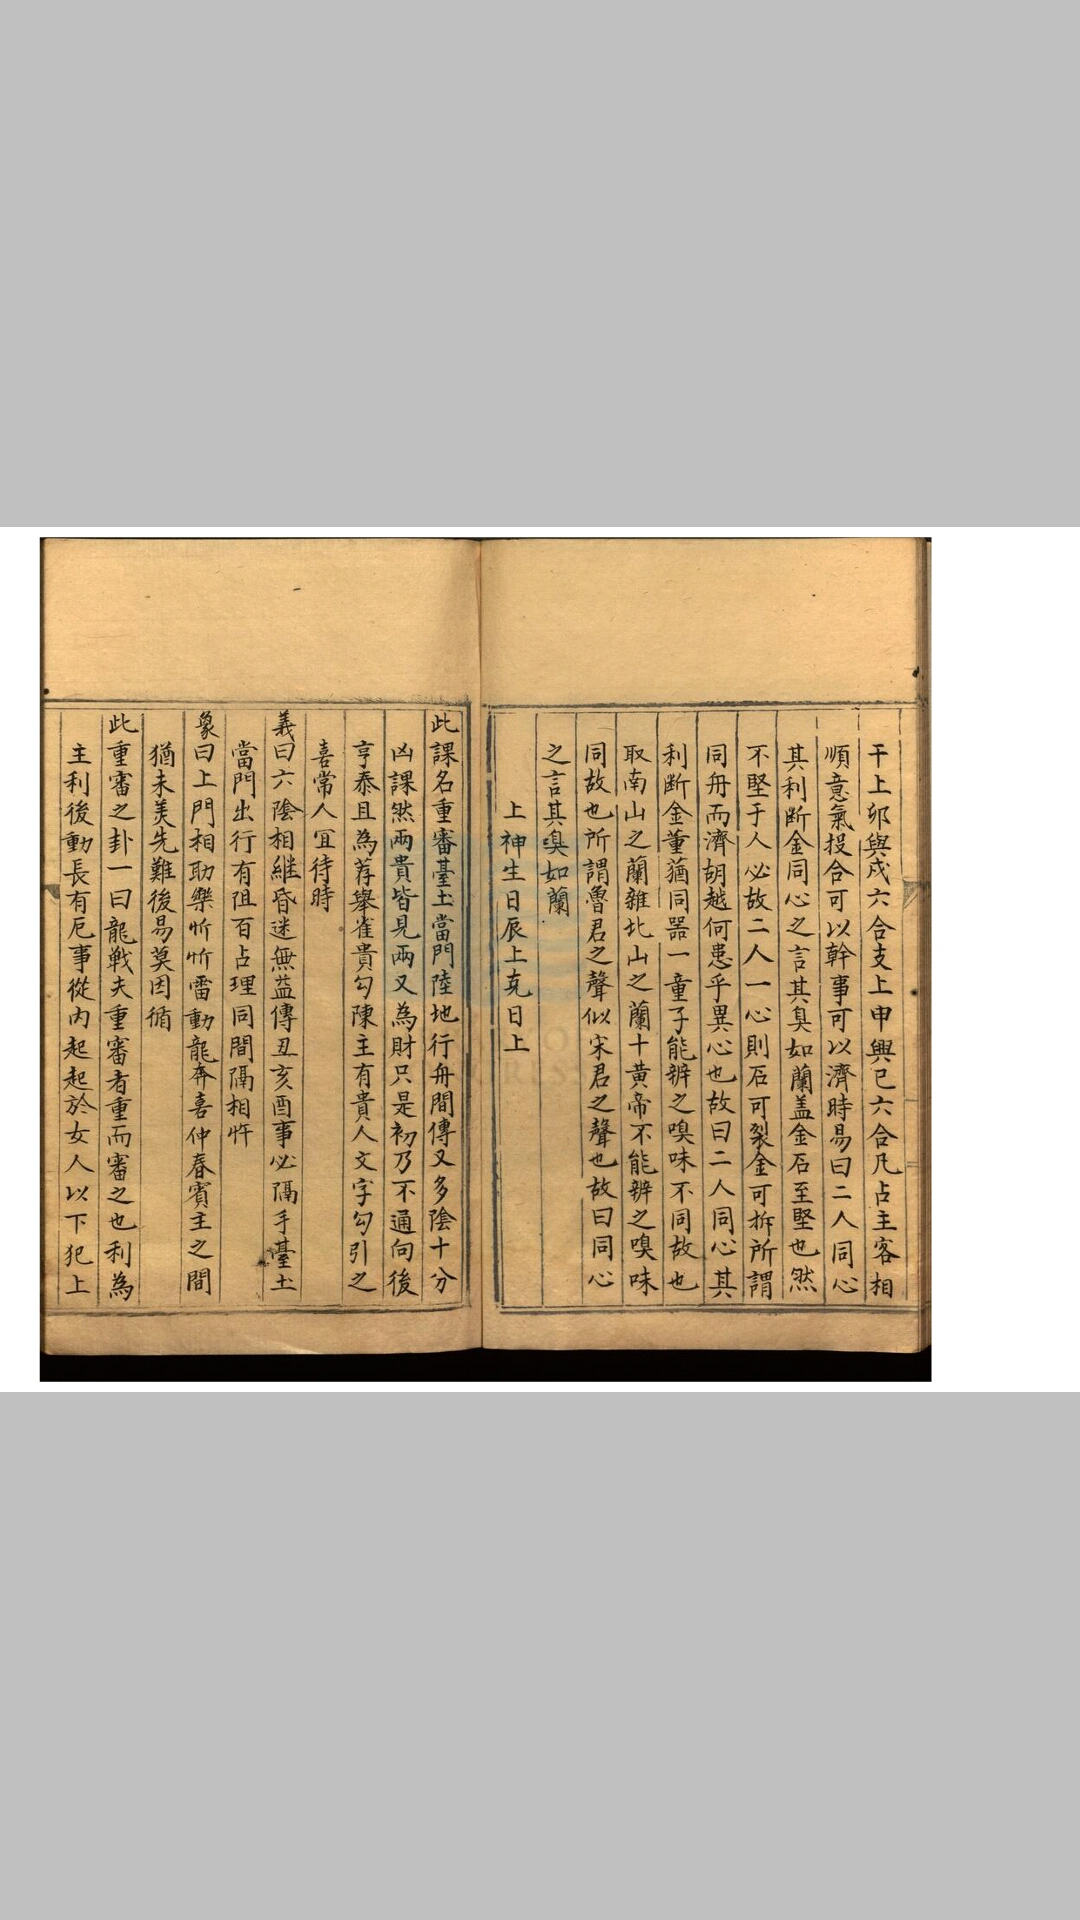 干上卯與戌六合支上申與巳六合凡占主客相
順意氣投合可以幹事可以濟時易曰二人同心
其利斷金同心之言其臭如蘭盖金石至堅也然
不堅于人心故二人一心則石可裂金可拆所謂
同舟而濟胡越何患乎異心也故曰二人同心其
利斷金薰蕕同器一童子能辨之嗅味不同故也
取南山之蘭雜北山之蘭十黄帝不能辨之嗅味
同故也所謂魯君之聲似宋君之聲也故曰同心
之言其嗅如蘭
上神生日辰上克日上
此課名重審臺土當門陸地行舟間傳又多陰十分
凶課然兩貴皆見兩又為財只是初乃不通向後
亨泰且為荐舉雀貴勾陳主有貴人文字勾引之
喜常人宜待時
義曰六陰相継昏迷無益傳丑亥酉事必隔手臺土
當門出行有阻百占理同間隔相忤
象曰上門相助樂忻忻雷動龍奔喜仲春賓主之間
猶未美先難後易莫因循
此重審之卦一曰龍戰夫重審者重而審之也利為
主利後動長有厄事從内起起於女人以下犯上